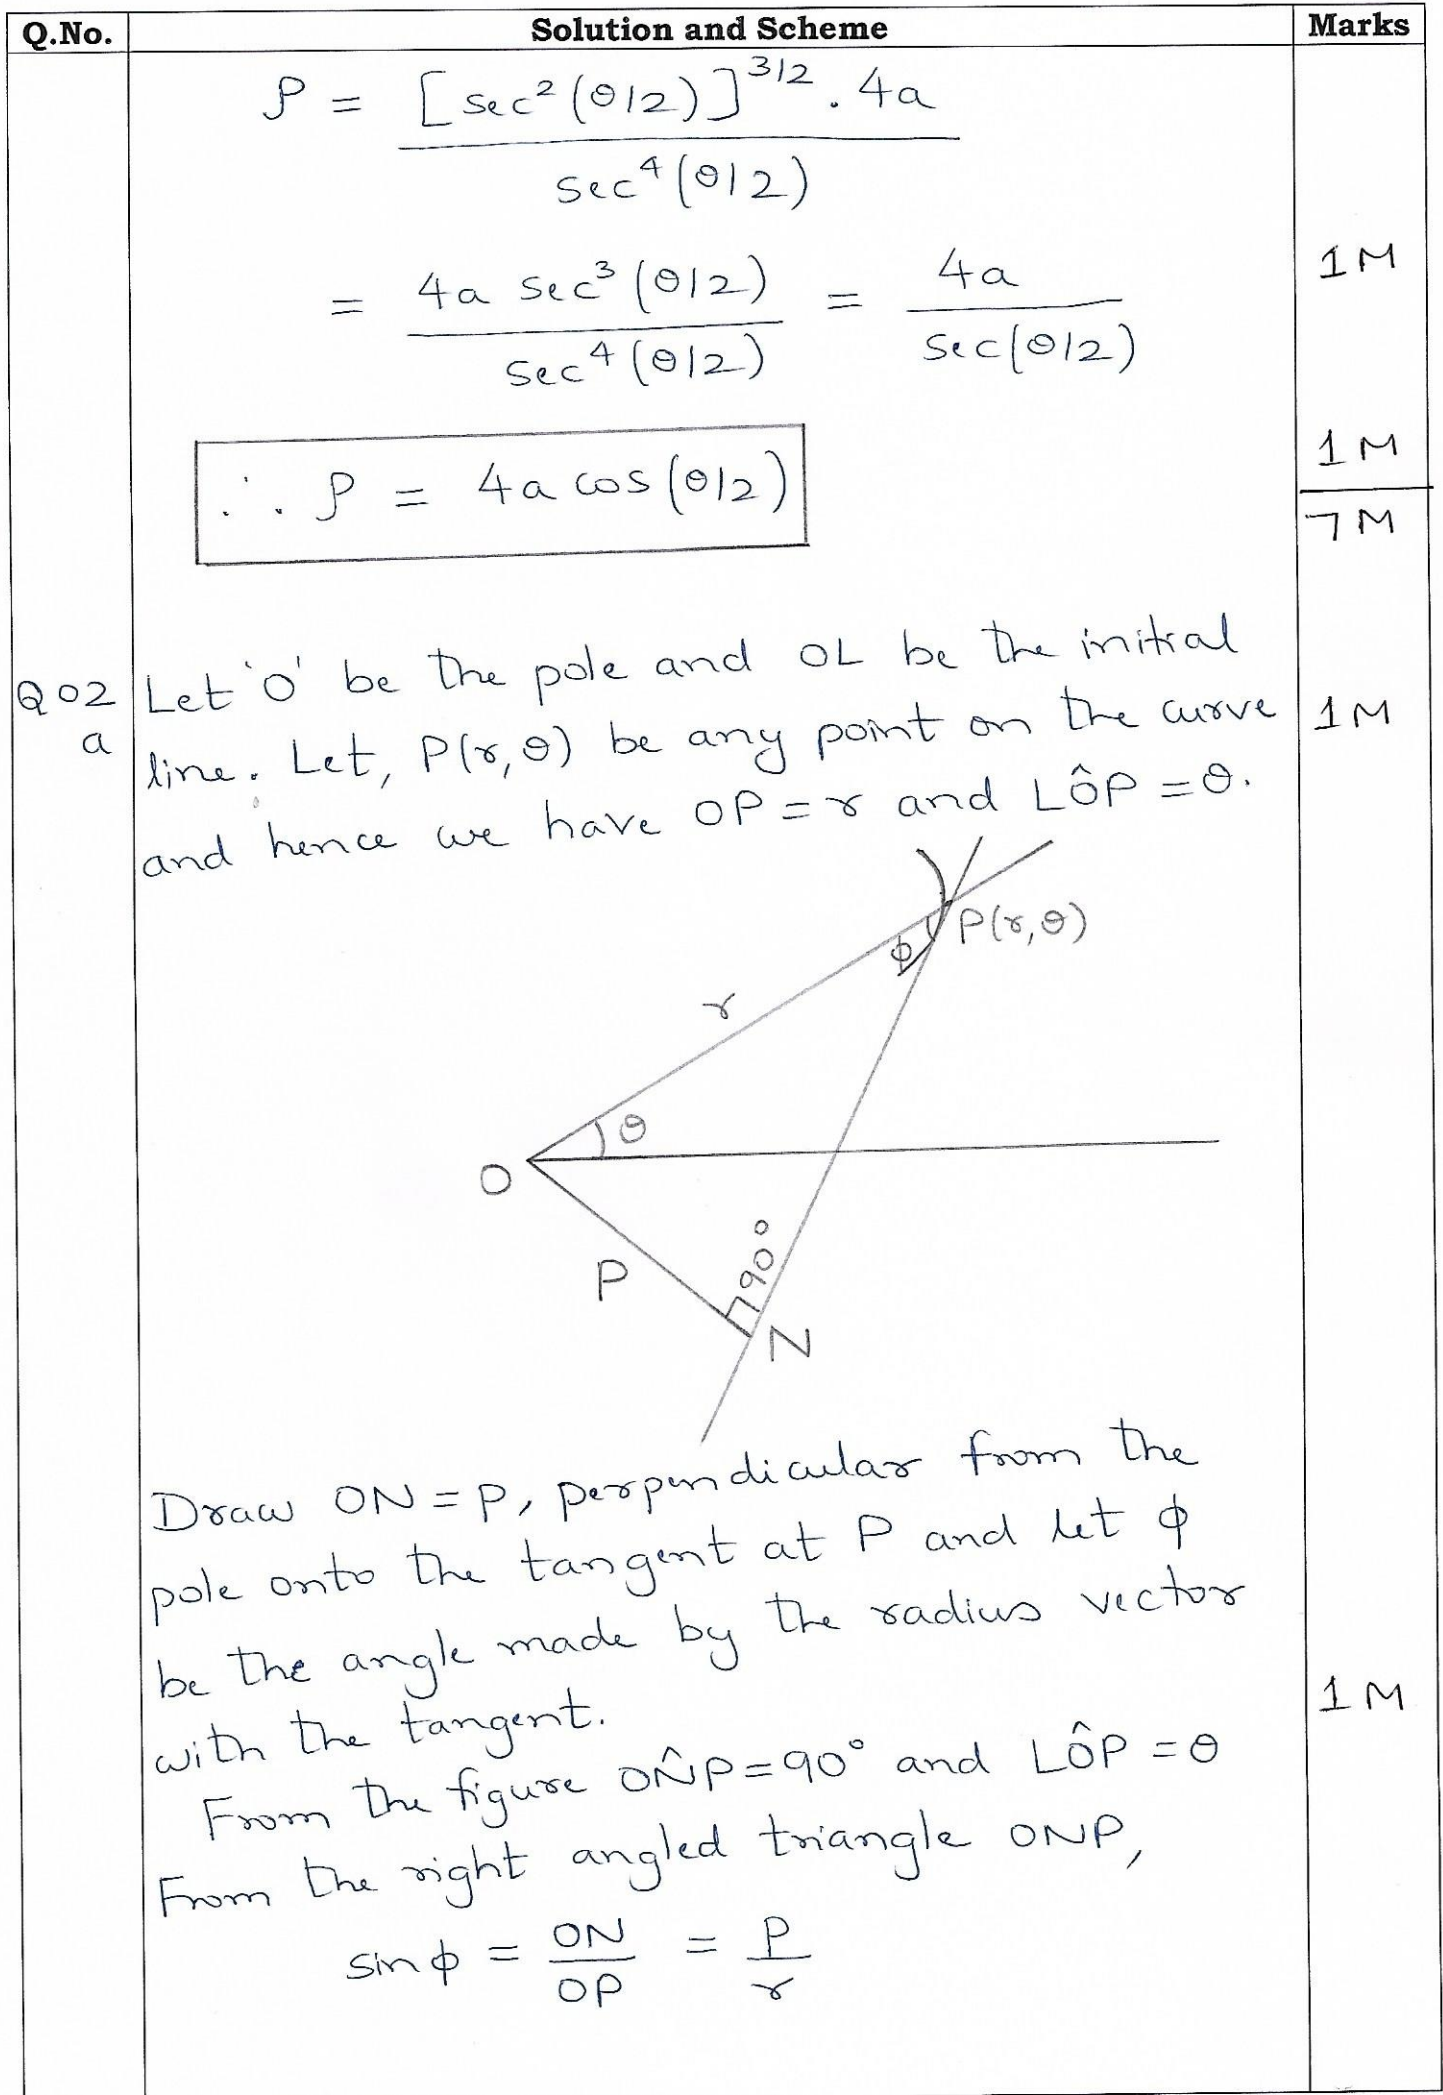 Q.No. Solution and Scheme Marks
ρ = [sec²(θ/2)]^3/2 . 4a / sec⁴(θ/2)
= 4a sec³(θ/2) / sec⁴(θ/2) = 4a / sec(θ/2) 1M
∴ ρ = 4a cos(θ/2) 1M
7M
Q02 a Let 'O' be the pole and OL be the initial
line. Let, P(r,θ) be any point on the curve 1M
and hence we have OP = r and LÔP = θ.
P(r,θ)
φ
r
θ
O
P
90°
N
Draw ON = P, perpendicular from the
pole onto the tangent at P and let φ
be the angle made by the radius vector
with the tangent. 1M
From the figure ON̂P = 90° and LÔP = θ
From the right angled triangle ONP,
sin φ = ON / OP = P / r